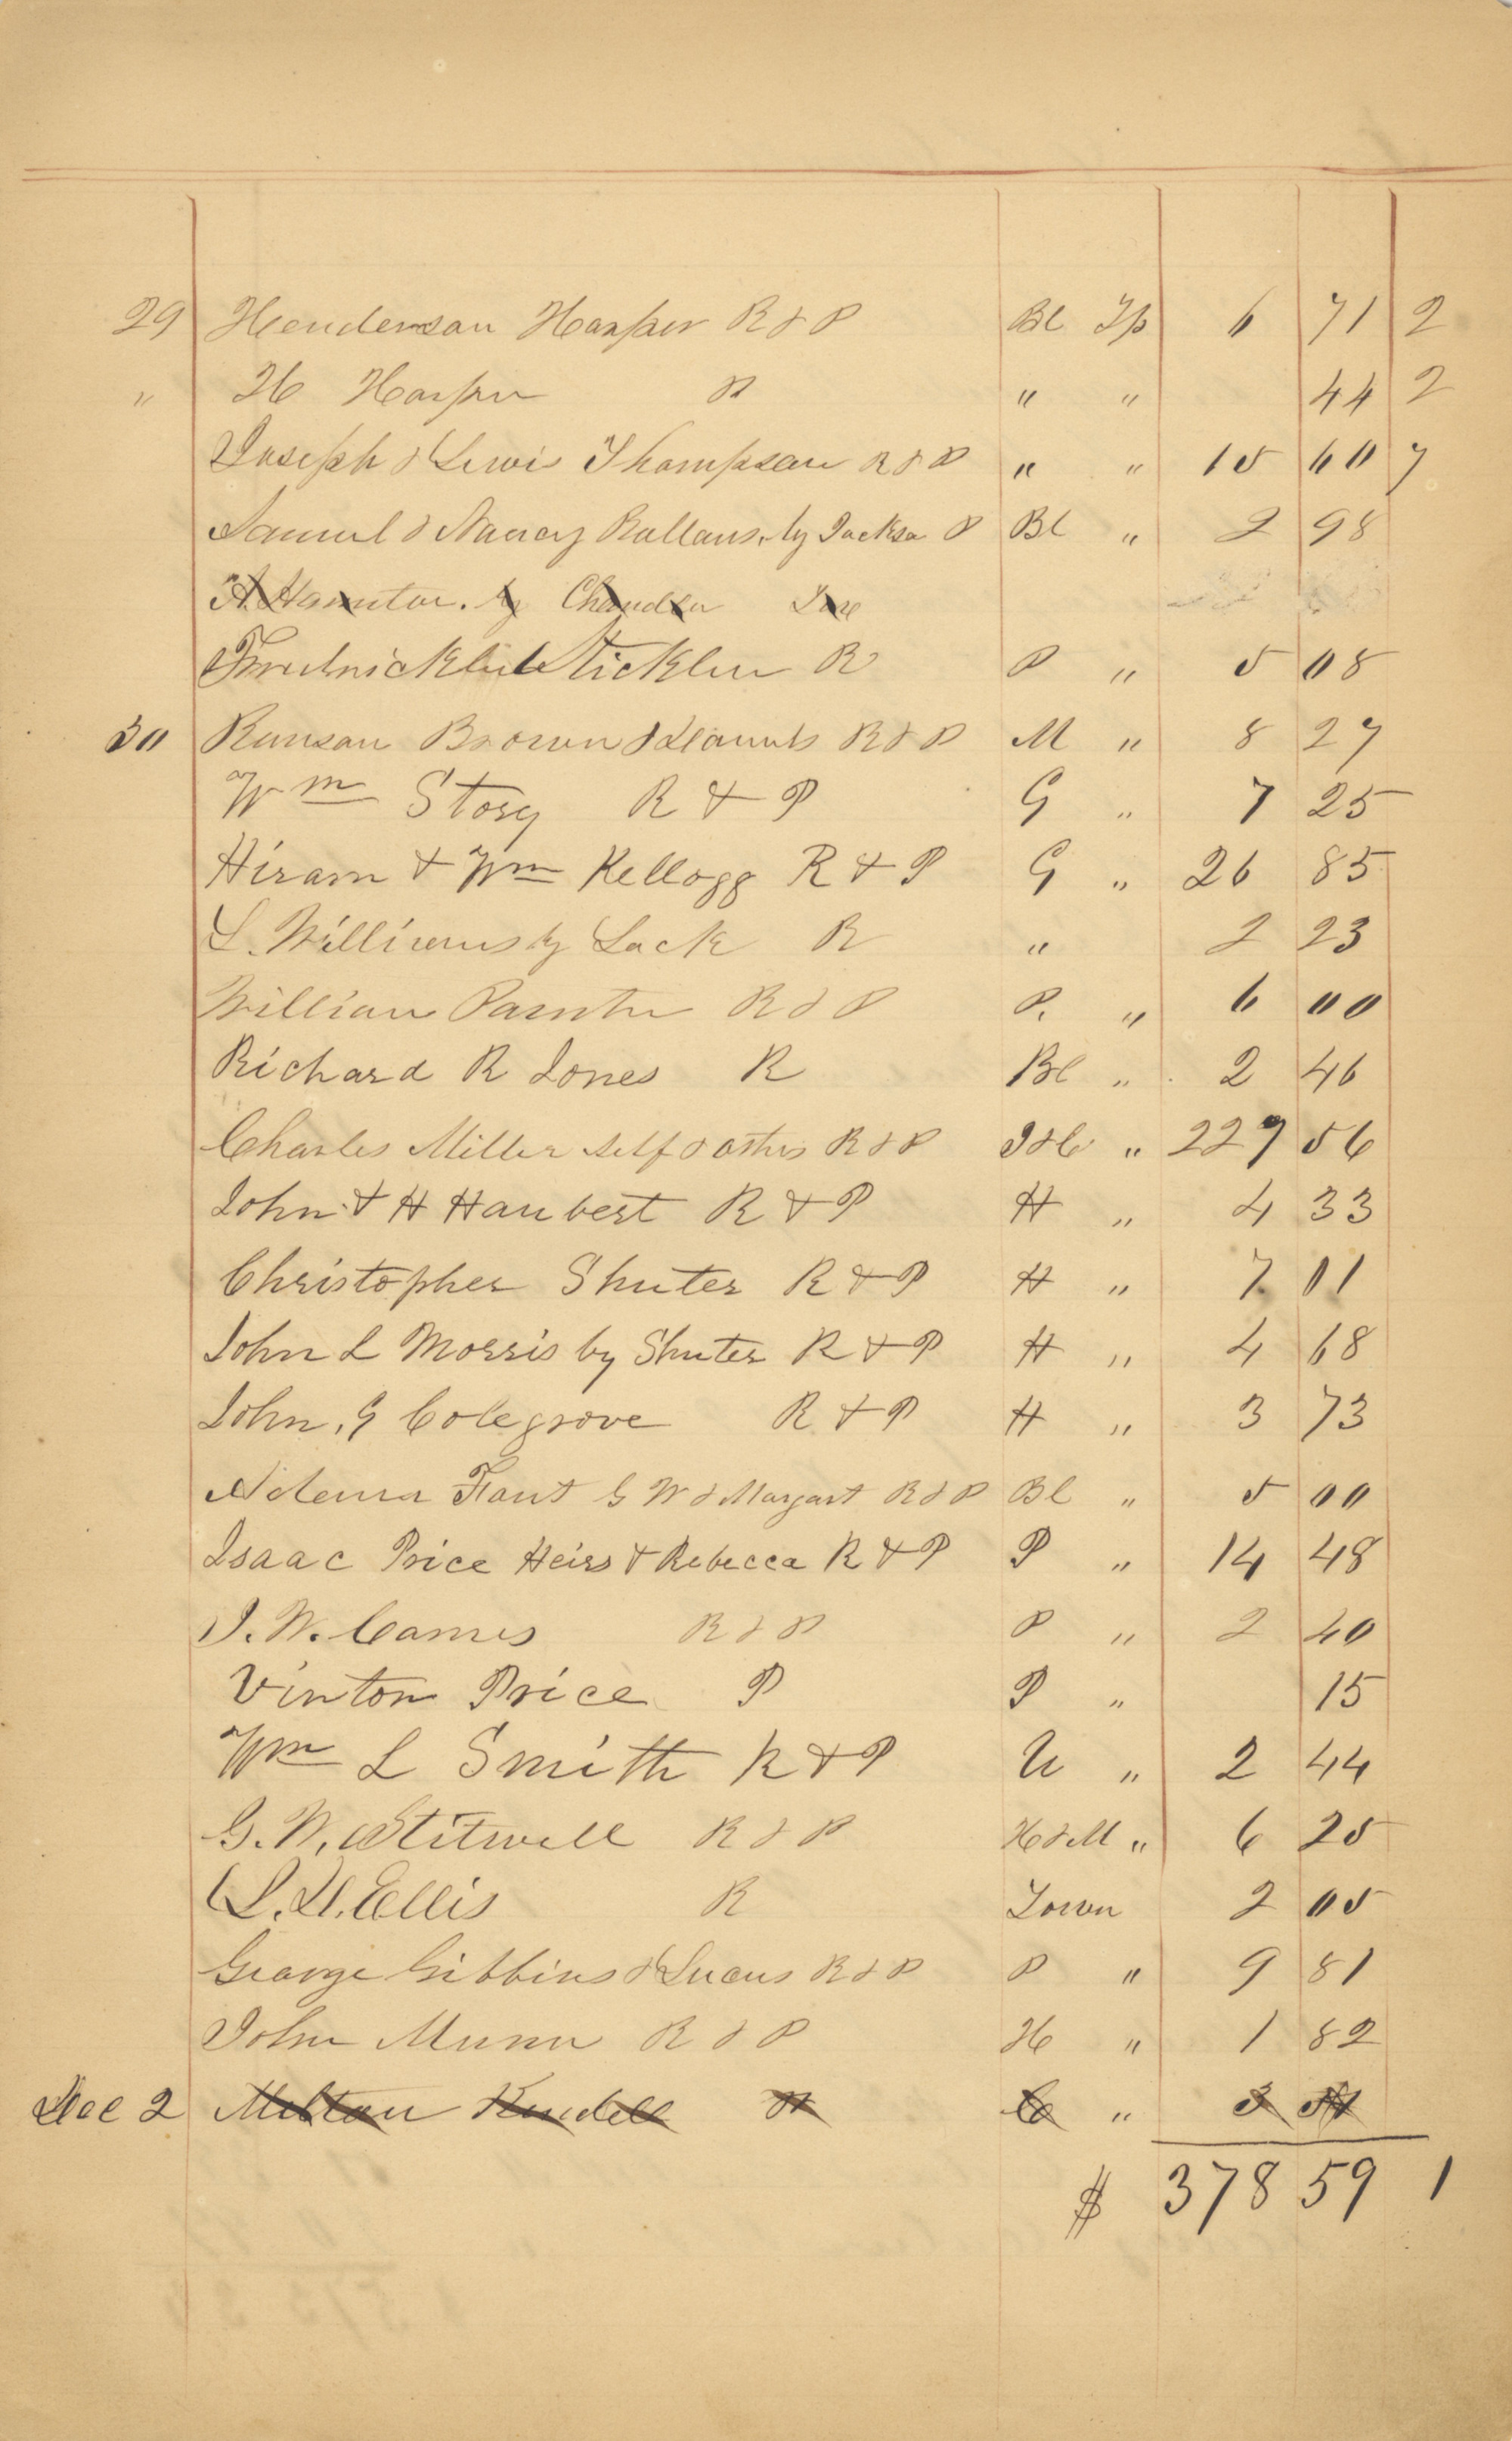 29 Henderson Harper R & P Bl Tp 6 71 2
" H Harper R " " 44 2
Joseph & Lewis Thompson R & P " " 15 60 7
Samuel & Nancy by Jackson P Bl " 2 98
A. Hamilton. by Chandler
Sticklen R P " 5 08
30 Ransan Brown & R & P M " 8 27
Wm Story R & P G " 7 25
Hiram & Wm Kellogg R & P G " 26 85
L. Williams by Lack R " 2 23
William Painter R & P P. " 6 00
Richard R Jones R Bl " 2 46
Charles Miller self & others R & P " 227 56
John & H Haubert R & P H " 4 33
Christopher Shuter R & P H " 7 01
John L Morris by Shuter R & P H " 4 68
John, G Colegrove R & P H " 3 73
Fant G W & Margart R & P Bl " 5 00
Isaac Price Heirs & Rebecca R & P P " 14 48
J. W. Carnes R & P P " 2 40
Vinton Price P P " 15
Wm L Smith R & P U " 2 44
G. W. Stitwell R & P H & M " 6 25
Ellis R Town 2 05
George Gibbins & Lucus R & P P " 9 81
John Munn R & P H " 1 82
Dec 2 Milton Kendell R "
$ 378 59 1